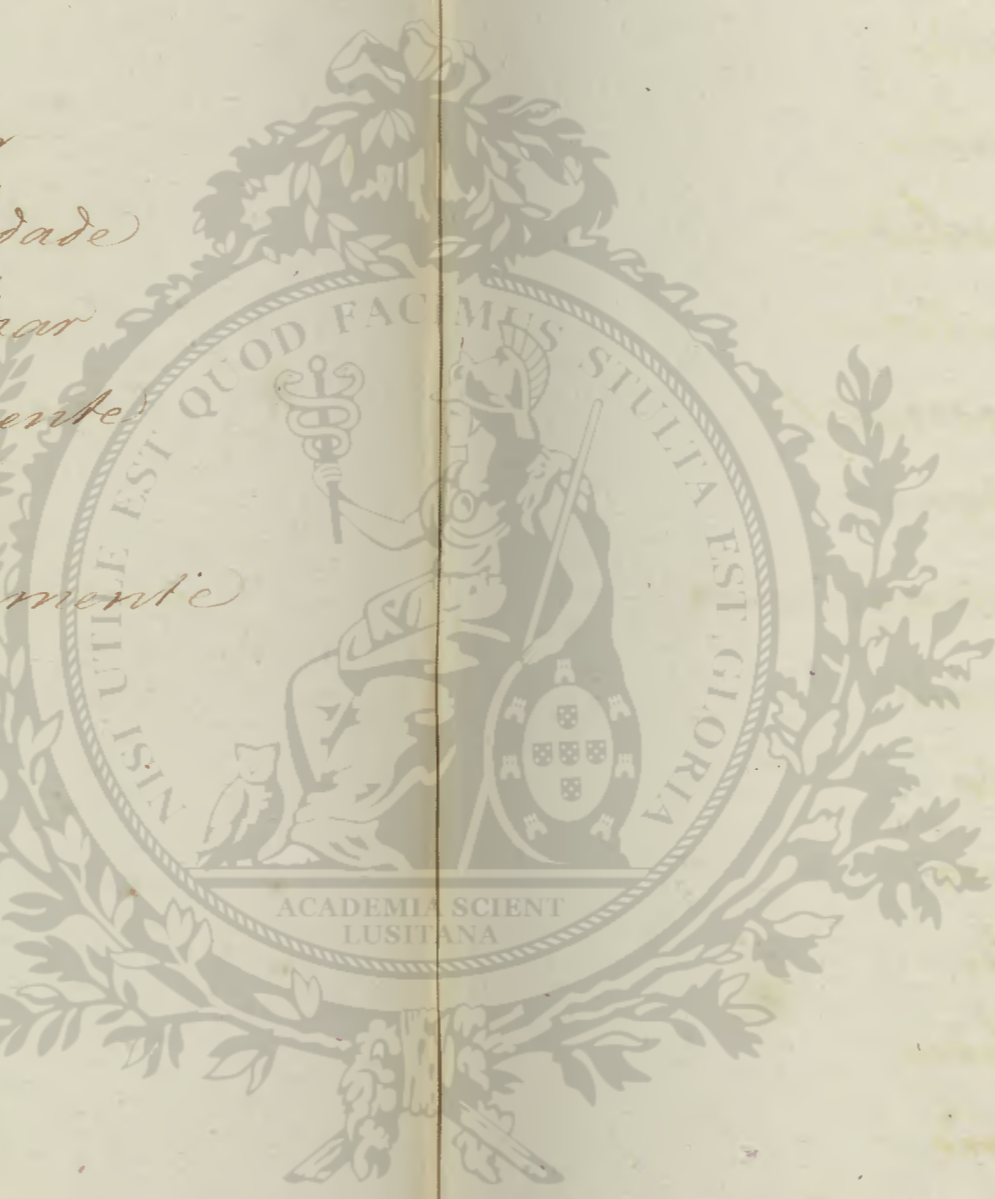 dade
nar
ente
mente
NISI UTILE EST QUOD FACIMUS STULTA EST GLORIA
ACADEMIA SCIENT
LUSITANA